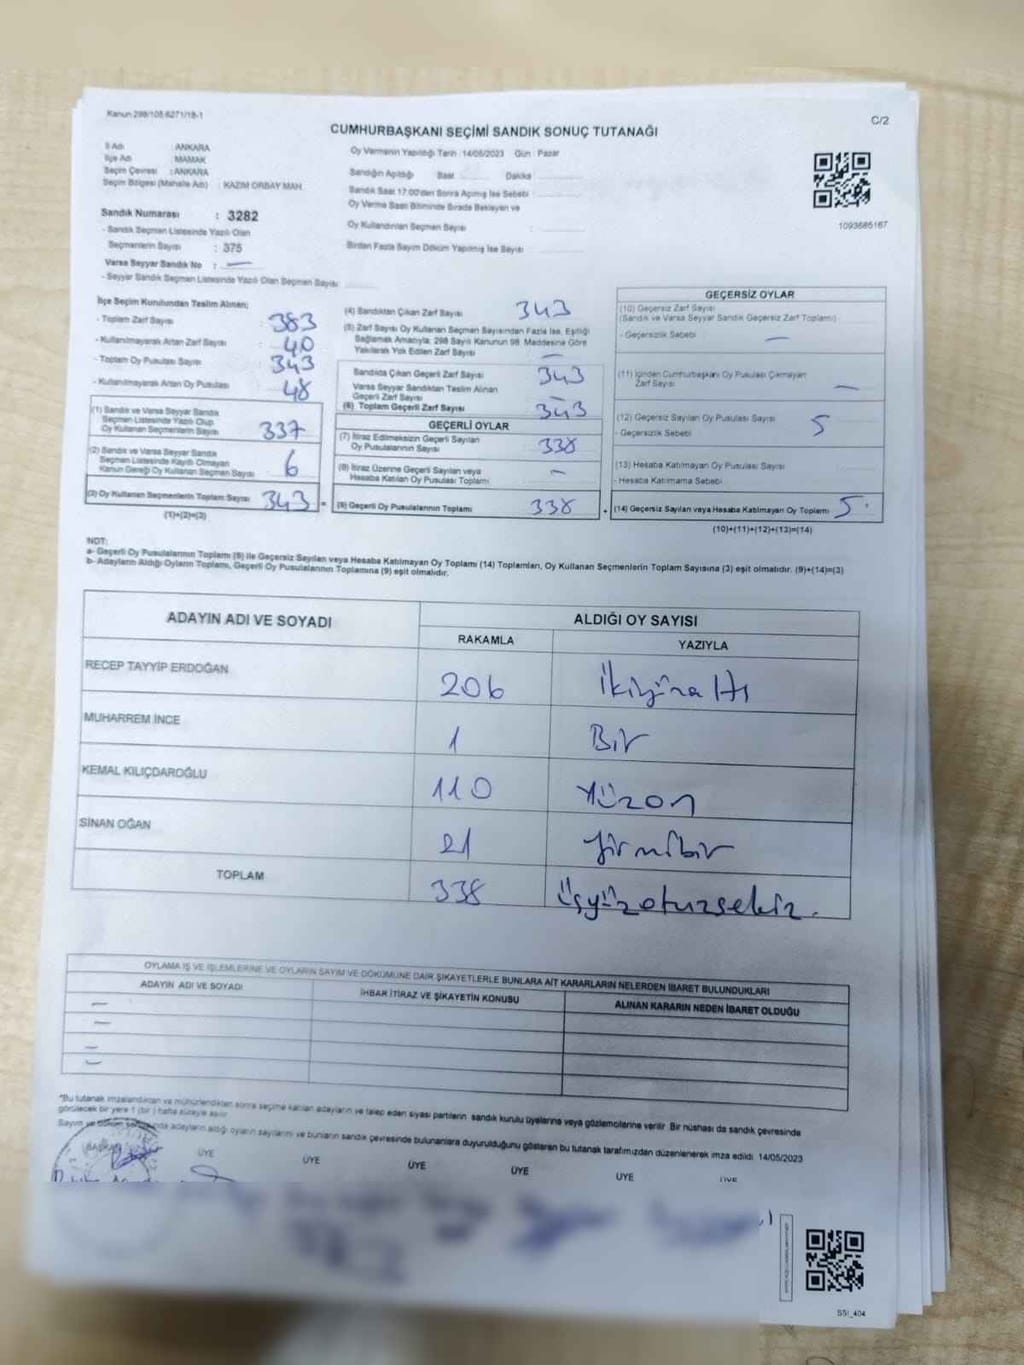 Kanun 298/105,6271/18-1
C/2
CUMHURBAŞKANI SEÇİMİ SANDIK SONUÇ TUTANAĞI
İl Adı : ANKARA
İlçe Adı : MAMAK
Seçim Çevresi : ANKARA
Seçim Bölgesi (Mahalle Adı) : KAZIM ORBAY MAH.
Sandık Numarası : 3282
- Sandık Seçmen Listesinde Yazılı Olan
Seçmenlerin Sayısı : 375
Varsa Seyyar Sandık No : —
- Seyyar Sandık Seçmen Listesinde Yazılı Olan Seçmen Sayısı
Oy Vermenin Yapıldığı Tarih :14/05/2023 Gün : Pazar
Sandığın Açıldığı Saat Dakika
Sandık Saat 17:00'den Sonra Açılmış İse Sebebi
Oy Verme Saati Bitiminde Sırada Bekleyen ve
Oy Kullandırılan Seçmen Sayısı :
Birden Fazla Sayım Döküm Yapılmış İse Sayısı
1093685167
İlçe Seçim Kurulundan Teslim Alınan;
- Toplam Zarf Sayısı : 383
- Kullanılmayarak Artan Zarf Sayısı : 40
- Toplam Oy Pusulası Sayısı : 343
- Kullanılmayarak Artan Oy Pusulası : 48
(1) Sandık ve Varsa Seyyar Sandık
Seçmen Listesinde Yazılı Olup
Oy Kullanan Seçmenlerin Sayısı 337
(2) Sandık ve Varsa Seyyar Sandık
Seçmen Listesinde Kayıtlı Olmayan
Kanun Gereği Oy Kullanan Seçmen Sayısı 6
(3) Oy Kullanan Seçmenlerin Toplam Sayısı 343 =
(1)+(2)=(3)
(4) Sandıktan Çıkan Zarf Sayısı 343
(5) Zarf Sayısı Oy Kullanan Seçmen Sayısından Fazla İse, Eşitliği
Sağlamak Amacıyla; 298 Sayılı Kanunun 98. Maddesine Göre
Yakılarak Yok Edilen Zarf Sayısı —
Sandıkta Çıkan Geçerli Zarf Sayısı 343
Varsa Seyyar Sandıktan Teslim Alınan
Geçerli Zarf Sayısı —
(6) Toplam Geçerli Zarf Sayısı 343
GEÇERLİ OYLAR
(7) İtiraz Edilmeksizin Geçerli Sayılan
Oy Pusulalarının Sayısı 338
(8) İtiraz Üzerine Geçerli Sayılan veya
Hesaba Katılan Oy Pusulası Toplamı —
(9) Geçerli Oy Pusulalarının Toplamı 338 +
GEÇERSİZ OYLAR
(10) Geçersiz Zarf Sayısı
(Sandık ve Varsa Seyyar Sandık Geçersiz Zarf Toplamı)
- Geçersizlik Sebebi —
(11) İçinden Cumhurbaşkanı Oy Pusulası Çıkmayan
Zarf Sayısı —
(12) Geçersiz Sayılan Oy Pusulası Sayısı 5
- Geçersizlik Sebebi
(13) Hesaba Katılmayan Oy Pusulası Sayısı
- Hesaba Katılmama Sebebi
(14) Geçersiz Sayılan veya Hesaba Katılmayan Oy Toplamı 5
(10)+(11)+(12)+(13)=(14)
NOT:
a- Geçerli Oy Pusulalarının Toplamı (9) ile Geçersiz Sayılan veya Hesaba Katılmayan Oy Toplamı (14) Toplamları, Oy Kullanan Seçmenlerin Toplam Sayısına (3) eşit olmalıdır. (9)+(14)=(3)
b- Adayların Aldığı Oyların Toplamı, Geçerli Oy Pusulalarının Toplamına (9) eşit olmalıdır.
ADAYIN ADI VE SOYADI ALDIĞI OY SAYISI
RAKAMLA YAZIYLA
RECEP TAYYİP ERDOĞAN 206 İkiyüzaltı
MUHARREM İNCE 1 Bir
KEMAL KILIÇDAROĞLU 110 Yüzon
SİNAN OĞAN 21 Yirmibir
TOPLAM 338 Üçyüzotuzsekiz.
OYLAMA İŞ VE İŞLEMLERİNE VE OYLARIN SAYIM VE DÖKÜMÜNE DAİR ŞİKAYETLERLE BUNLARA AİT KARARLARIN NELERDEN İBARET BULUNDUKLARI
ADAYIN ADI VE SOYADI İHBAR İTİRAZ VE ŞİKAYETİN KONUSU ALINAN KARARIN NEDEN İBARET OLDUĞU
—
—
—
—
*Bu tutanak imzalandıktan ve mühürlendikten sonra seçime katılan adayların ve talep eden siyasi partilerin sandık kurulu üyelerine veya gözlemcilerine verilir. Bir nüshası da sandık çevresinde
görülecek bir yere 1 (bir) hafta süreyle asılır.
Sayım ve döküm adayların aldığı oyların sayılarını ve bunların sandık çevresinde bulunanlara duyurulduğunu gösteren bu tutanak tarafımızdan düzenlenerek imza edildi. 14/05/2023
BAŞKAN ÜYE ÜYE ÜYE ÜYE ÜYE ÜYE
SSİ_404